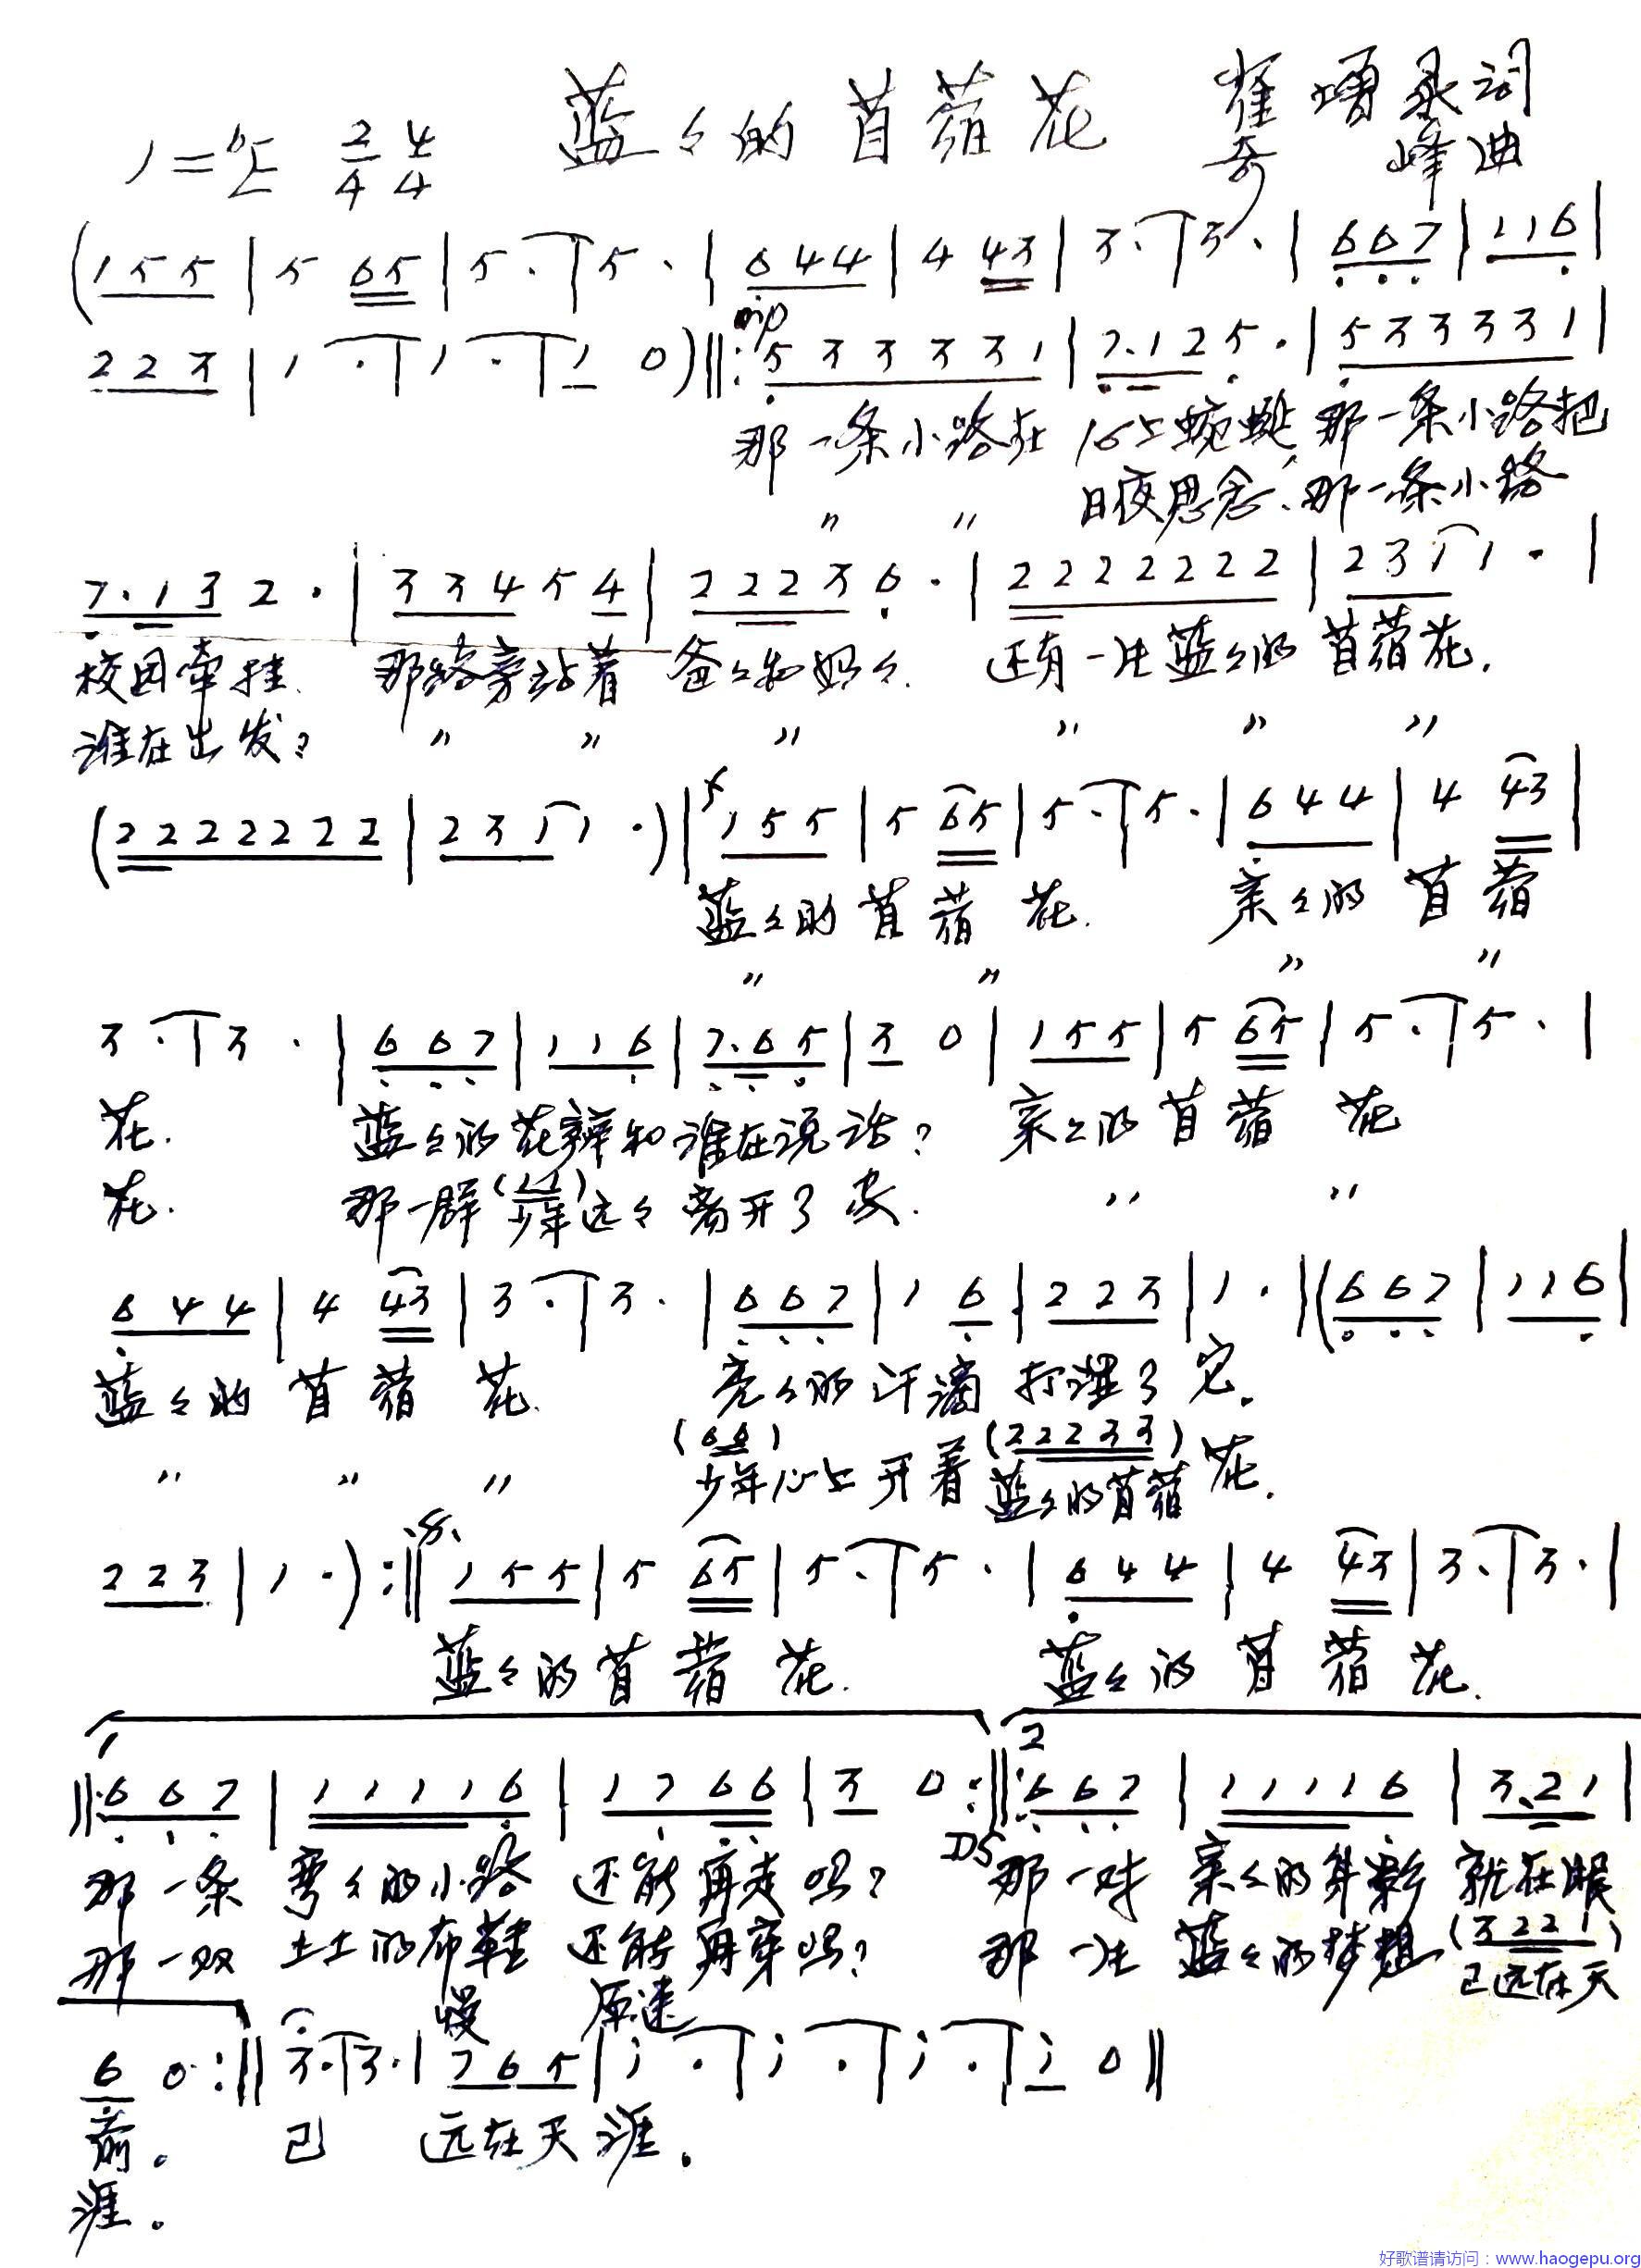 蓝々的苜蓿花 崔增录词
1=♭E 2/4 4/4 奇峰曲
(1 5 5 | 5 6 5 | 5 · | 5 · | 6 4 4 | 4 4 3 | 3 · | 3 · | 6 6 7 | 1 1 6 |
mp
2 2 3 | 1 · | 1 · | 1 0 ) ‖: 5 3 3 3 3 1 | 7 · 1 2 5 · | 5 3 3 3 3 1 |
那一条小路在 心上蜿蜒, 那一条小路把
〃 〃 日夜思念、那一条小路
7 · 1 3 2 · | 3 3 4 5 4 | 2 2 2 3 6 · | 2 2 2 2 2 2 2 | 2 3 1 1 · |
校园牵挂. 那路旁站着 爸々和妈々. 还有一片蓝々的苜蓿花.
谁在出发? 〃 〃 〃 〃 〃 〃
f
(2 2 2 2 2 2 2 | 2 3 1 1 · ) | 1 5 5 | 5 6 5 | 5 · | 5 · | 6 4 4 | 4 4 3 |
蓝々的苜蓿花. 亲々的苜蓿
〃 〃 〃 〃
3 · | 3 · | 6 6 7 | 1 1 6 | 7 · 6 5 | 3 0 | 1 5 5 | 5 6 5 | 5 · | 5 · |
花. 蓝々的花瓣和谁在说话? 亲々的苜蓿花
花. 那一群(1 1)少年远々离开了家. 〃 〃
6 4 4 | 4 4 3 | 3 · | 3 · | 6 6 7 | 1 6 | 2 2 3 | 1 · | (6 6 7 | 1 1 6 |
蓝々的苜蓿花. 亮々的汗滴打湿了它.
(6 6) (2 2 2 3 3)
〃 〃 〃 少年心上开着蓝々的苜蓿花.
𝄋
2 2 3 | 1 · ) :‖ 1 5 5 | 5 6 5 | 5 · | 5 · | 6 4 4 | 4 4 3 | 3 · | 3 · |
蓝々的苜蓿花. 蓝々的苜蓿花.
1 2
‖: 6 6 7 | 1 1 1 1 6 | 1 7 6 6 | 3 0 :‖: 6 6 7 | 1 1 1 1 6 | 3 · 2 1 |
DS
那一条 弯々的小路 还能再走吗? 那一对 亲々的身影 就在眼
那一双 土土的布鞋 还能再穿吗? 那一片 蓝々的梦想 (3 2 2 1)已远在天
慢 原速
6 0 :‖ 3 · | 3 · | 7 6 5 | i · | i · | i · | i 0 ‖
前。 已 远在天涯.
涯。
好歌谱请访问：www.haogepu.org